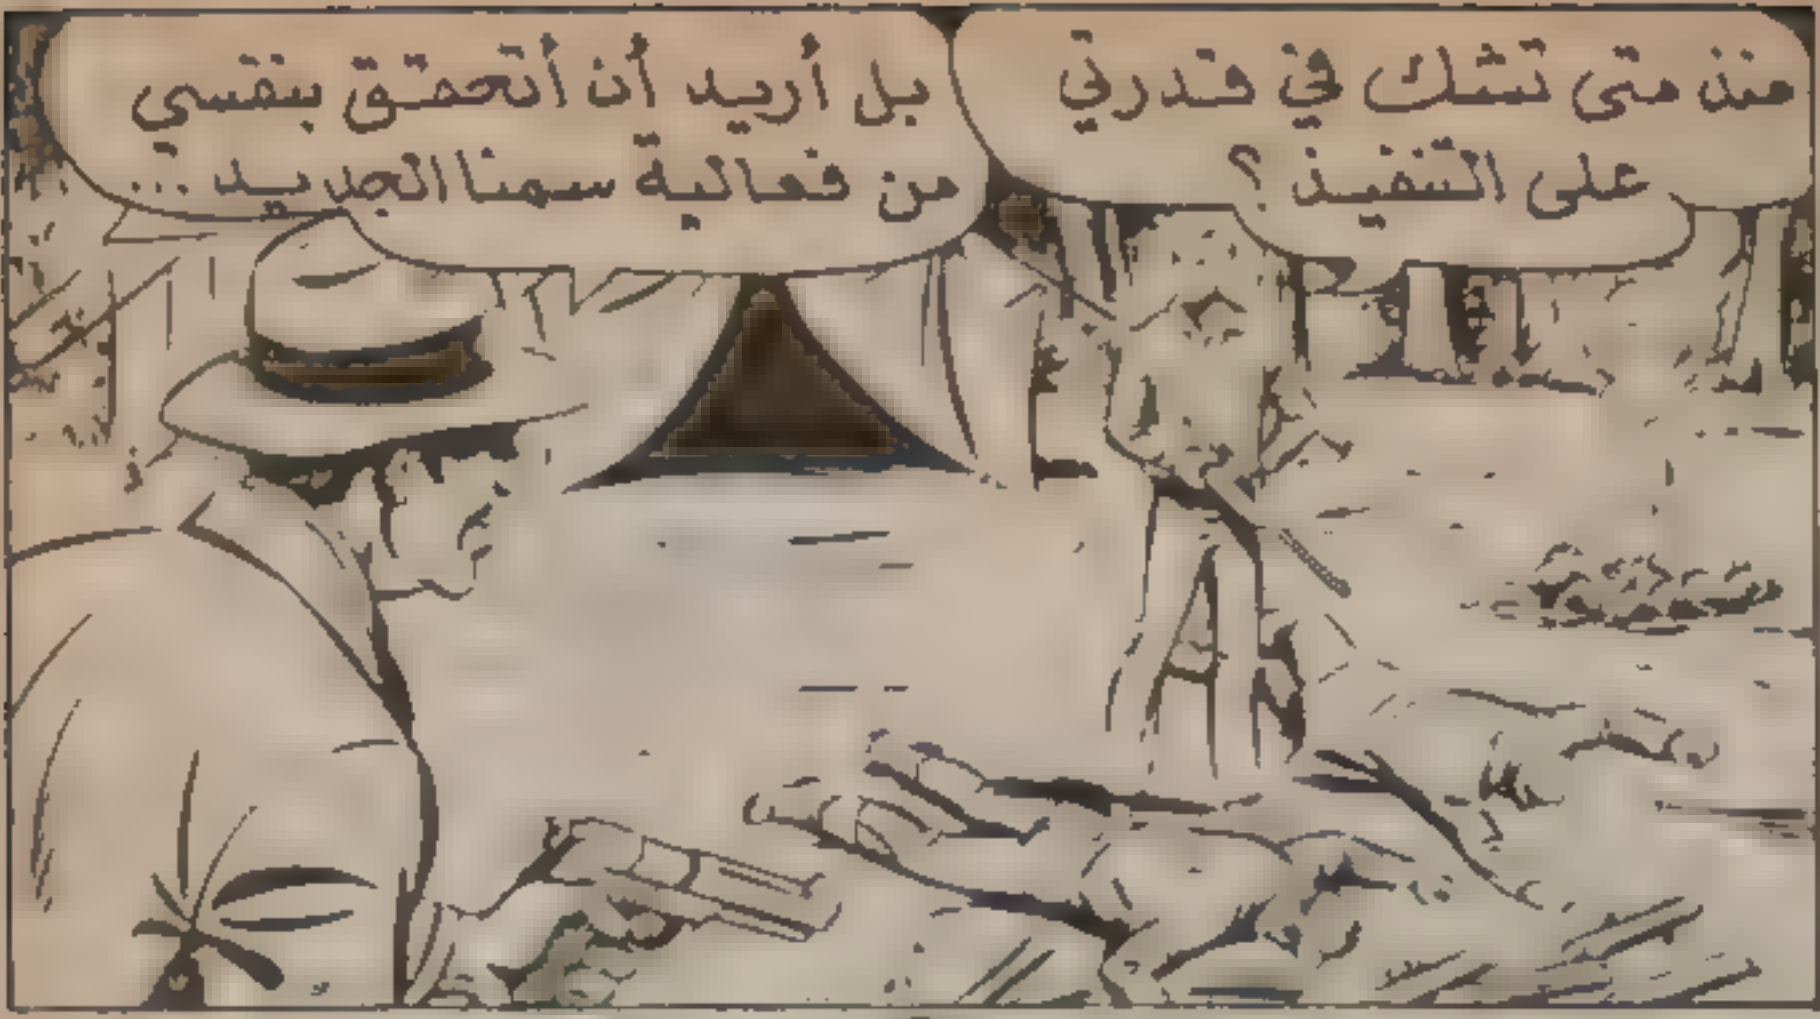 منذ متى تشك في قدرتي
على التنفيذ ؟
بل أريد أن أتحقق بنفسي
من فعالية سمنا الجديد ...